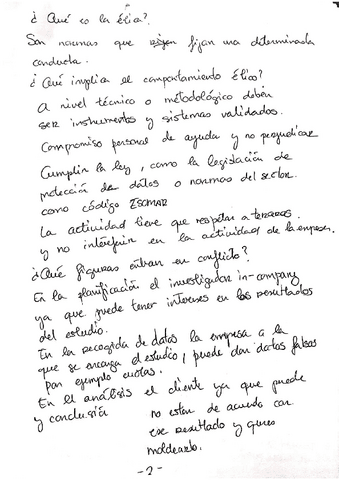 ¿Qué es la ética?
Son normas que rigen fijan una determinada
conducta.
¿Qué implica el comportamiento ético?
A nivel técnico o metodológico deben
ser instrumentos y sistemas validados.
Compromiso personal de ayuda y no perjudicar
Cumplir la ley, como la legislación de
protección de datos o normas del sector.
como código ESOMAR
La actividad tiene que respetar a terceros.
y no interferir en la actividad de la empresa.
¿Qué figuras entran en conflicto?
En la planificación el investigador in-company
ya que puede tener intereses en los resultados
del estudio.
En la recogida de datos la empresa a la
que se encarga el estudio, puede dar datos falsos
por ejemplo cuotas.
En el análisis el cliente ya que puede
y conclusión no estar de acuerdo con
ese resultado y quiere
moldearlo.
-2-